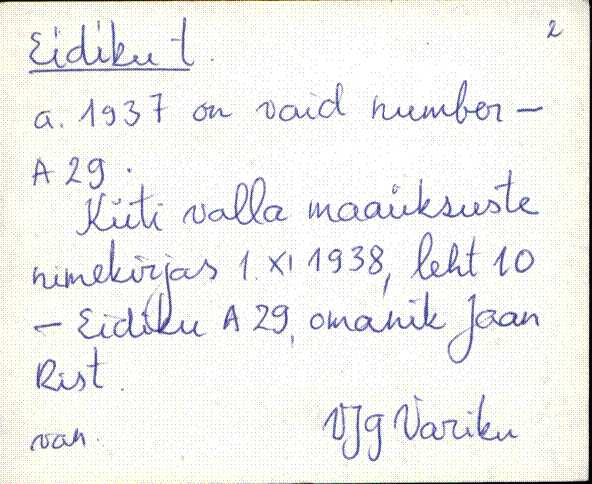 2
Eidiku t.
a. 1937 on vaid number –
A 29.
Küti valla maaüksuste
nimekirjas 1. XI 1938, leht 10
– Eidiku A 29, omanik Jaan
Rist.
van. VJg Variku